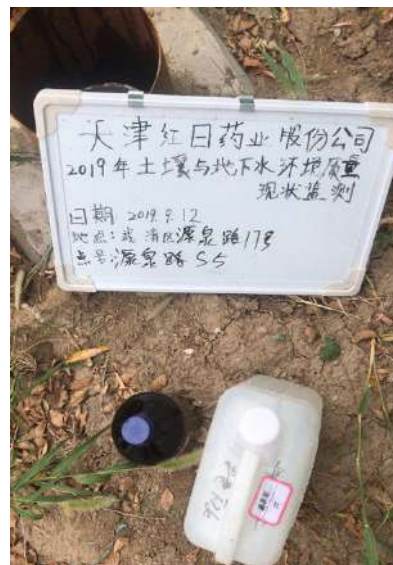 天津红日药业股份公司
2019年土壤与地下水环境质量
现状监测
日期 2019.9.12
地点:武清区源泉路17号
点号:源泉路S5